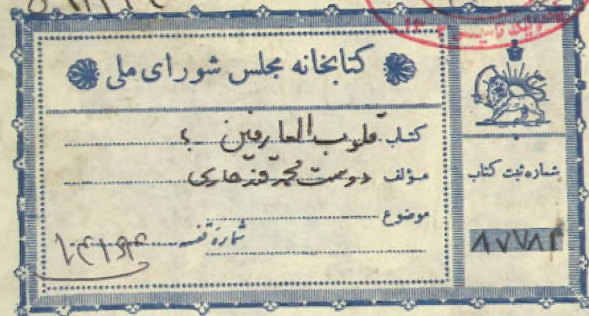 کتابخانه مجلس شورای ملی
کتاب قلوب العارفین
مؤلف دوست محمد قندهاری
موضوع
شماره قفسه
شماره ثبت کتاب
۸۷۷۸۲